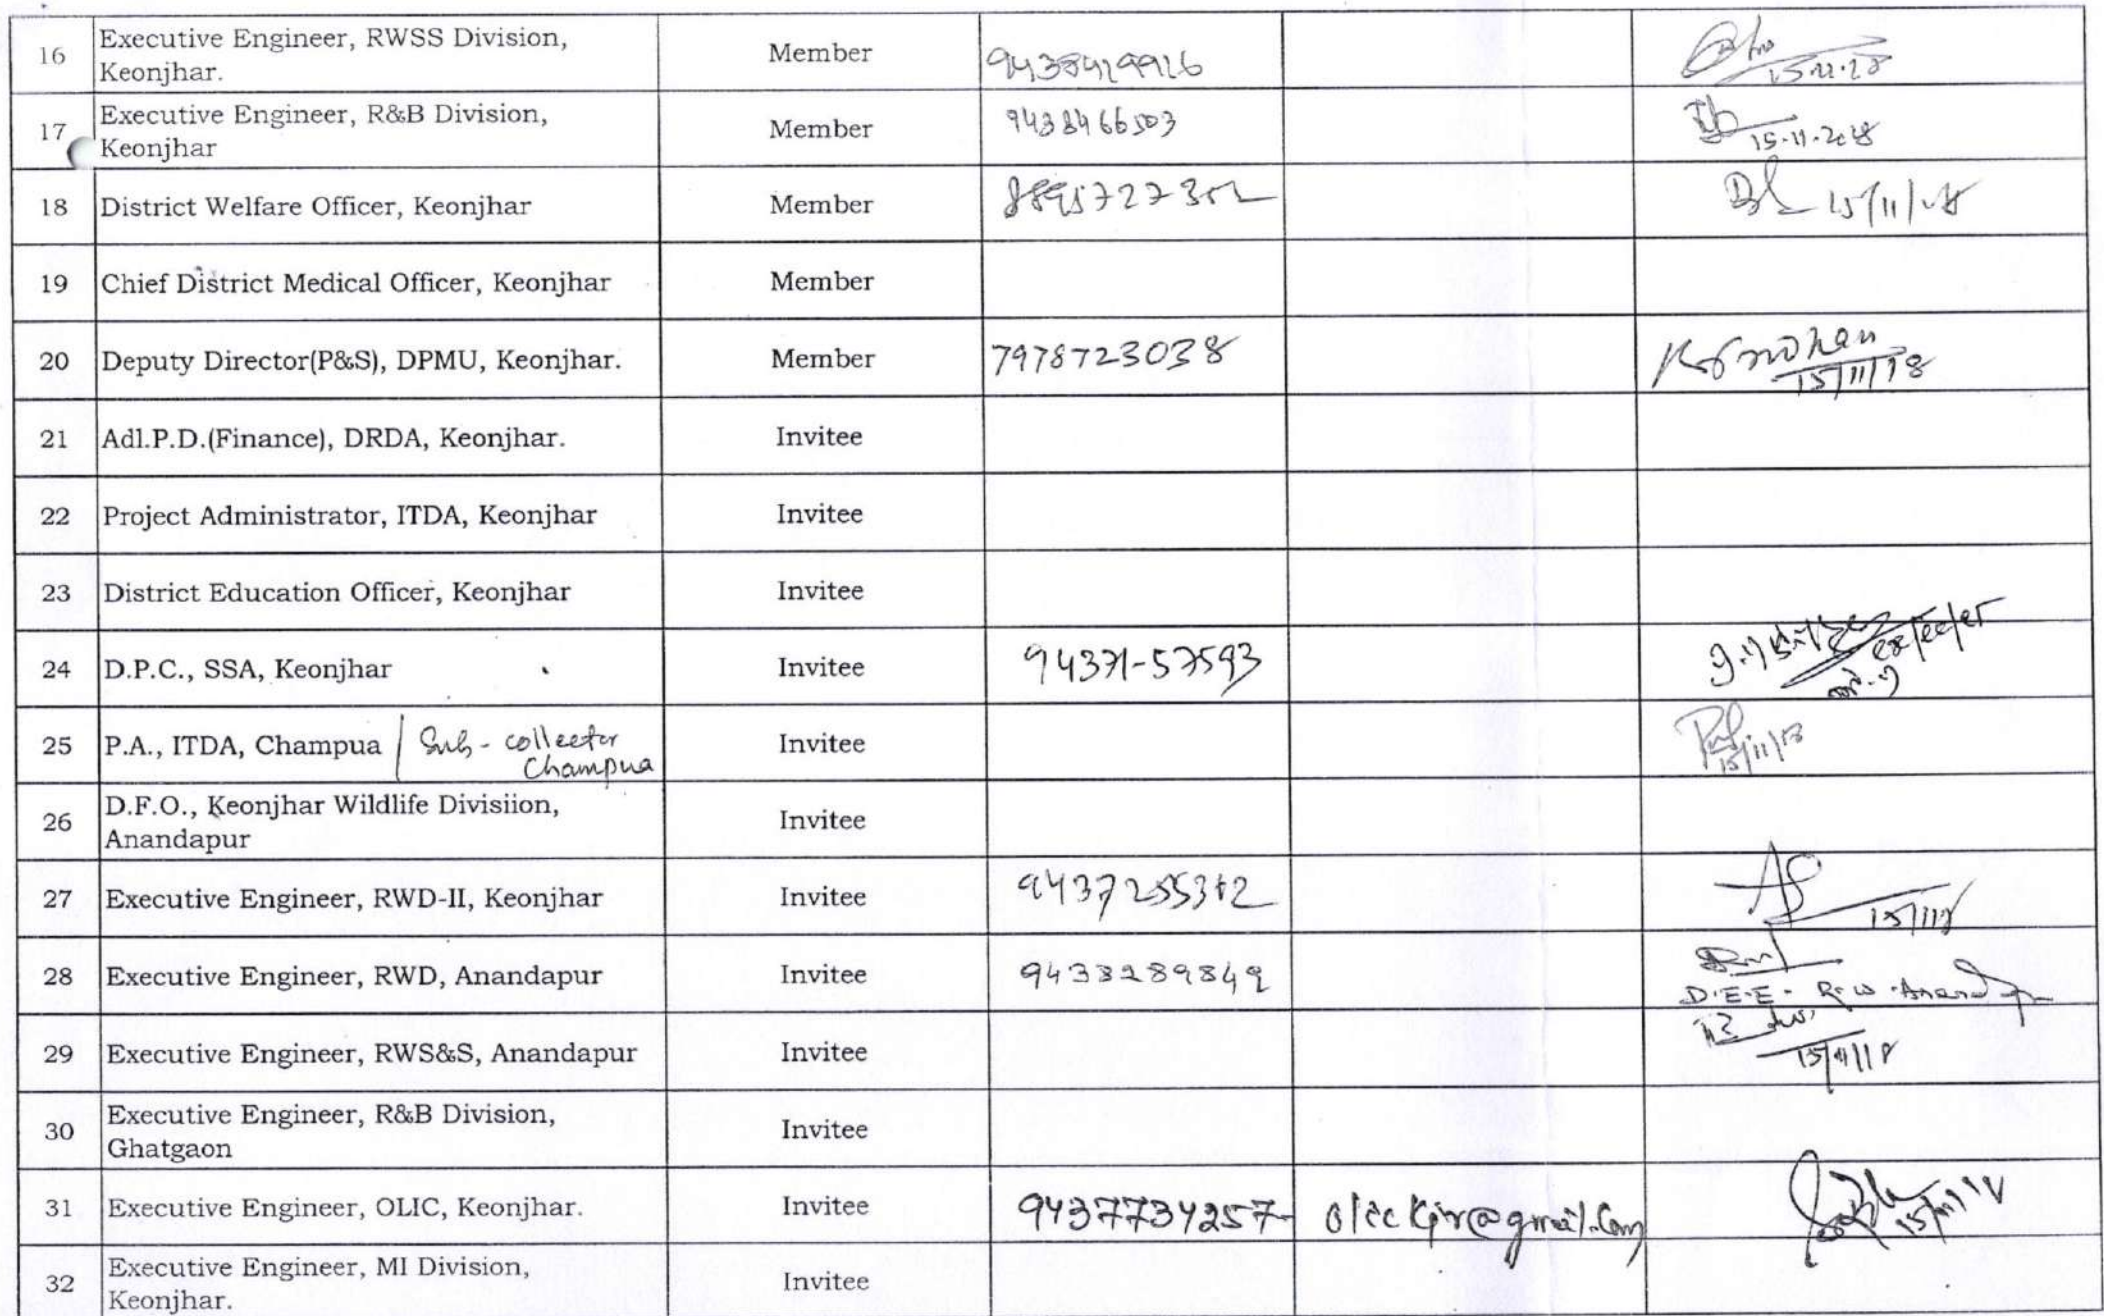 16 Executive Engineer, RWSS Division, Member
Keonjhar. 15.11.18
17 Executive Engineer, R&B Division, Member 9438466503
Keonjhar 15-11-2018
18 District Welfare Officer, Keonjhar Member 15/11/18
19 Chief District Medical Officer, Keonjhar Member
20 Deputy Director(P&S), DPMU, Keonjhar. Member 7978723038
15/11/18
21 Adl.P.D.(Finance), DRDA, Keonjhar. Invitee
22 Project Administrator, ITDA, Keonjhar Invitee
23 District Education Officer, Keonjhar Invitee
24 D.P.C., SSA, Keonjhar Invitee 94371-57593
25 P.A., ITDA, Champua / Sub-collector Invitee
Champua 15/11/18
26 D.F.O., Keonjhar Wildlife Divisiion, Invitee
Anandapur
27 Executive Engineer, RWD-II, Keonjhar Invitee
28 Executive Engineer, RWD, Anandapur Invitee
D.E.E. R.W.
29 Executive Engineer, RWS&S, Anandapur Invitee
15/11/18
30 Executive Engineer, R&B Division, Invitee
Ghatgaon
31 Executive Engineer, OLIC, Keonjhar. Invitee 9437734257
32 Executive Engineer, MI Division, Invitee
Keonjhar.